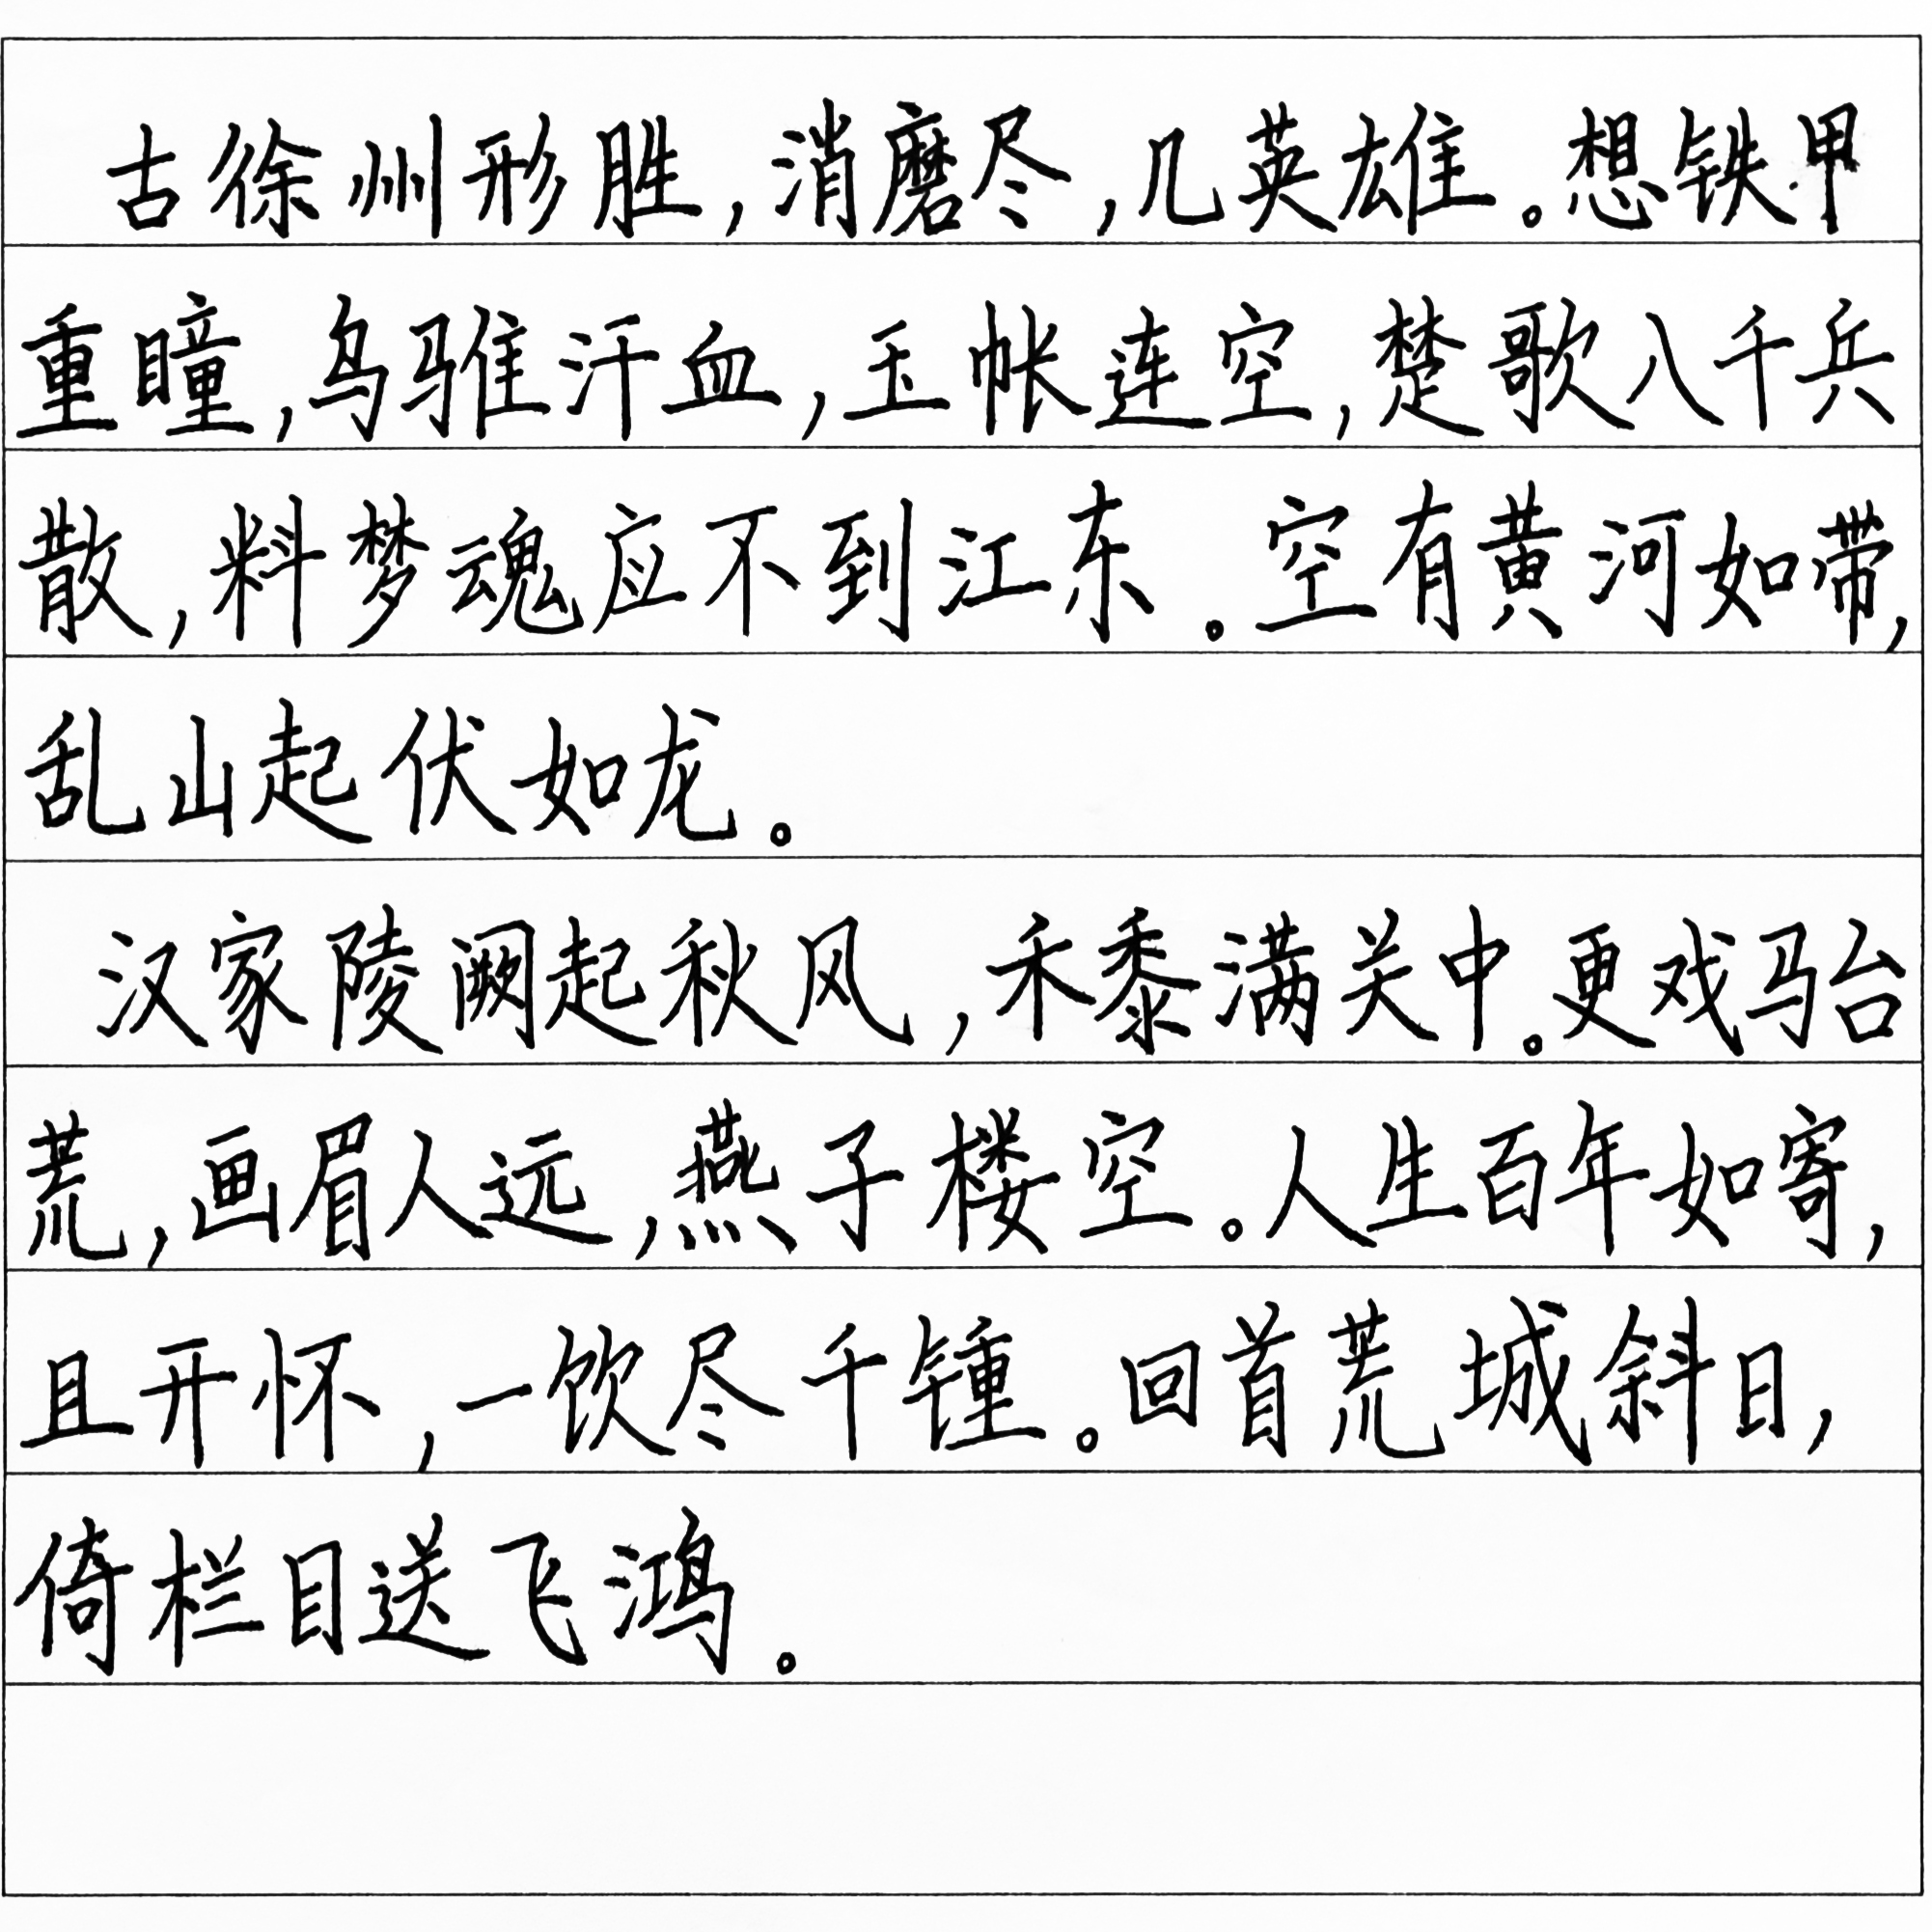 古徐州形胜，消磨尽，几英雄。想铁甲
重瞳，乌骓汗血，玉帐连空，楚歌八千兵
散，料梦魂应不到江东。空有黄河如带，
乱山起伏如龙。
汉家陵阙起秋风，禾黍满关中。更戏马台
荒，画眉人远，燕子楼空。人生百年如寄，
且开怀，一饮尽千锺。回首荒城斜日，
倚栏目送飞鸿。